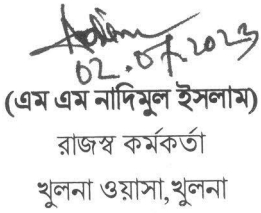 02.07.2023
(এম এম নাদিমুল ইসলাম)
রাজস্ব কর্মকর্তা
খুলনা ওয়াসা,খুলনা